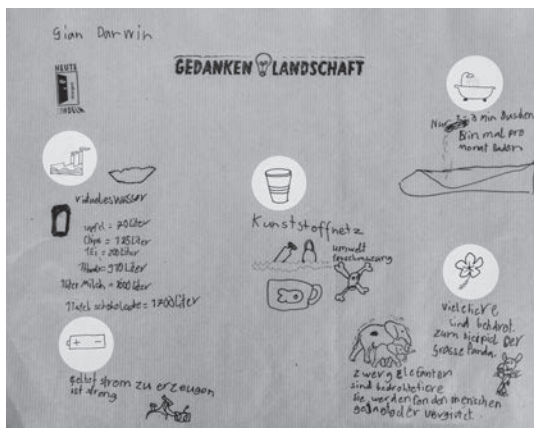 Gian Darwin
GEDANKEN LANDSCHAFT
HEUTE
Nur 2-3 min Duschen
Einmal pro
monat baden
virtuelles wasser
apfel = 70 Liter
Chips = 185 Liter
1 Ei = 200 Liter
1 Liter Milch = 1000 Liter
1 Tafel schokolade = 1700 Liter
Kunststoffnetz
umwelt
viele tiere
sind bedroht.
zum bispiel Der
grosse Panda.
selbst strom zu erzeugen
ist streng
zwerg Elefanten
sind bedrohte tiere
sie werden fon den menschen
oder vergiftet.